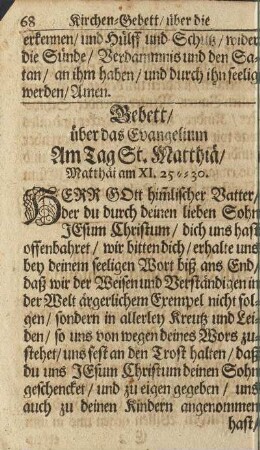 68 Kirchen-Gebett/ über die
erkennen/ und Hülff und Schutz/ wider
die Sünde/ Verdammnis und den Sa-
tan/ an ihm haben/ und durch ihn seelig
werden/ Amen.
Gebett/
über das Evangelium
Am Tag St. Matthiä/
Matthäi am XI. 25 = = 30.
HERR GOtt him̃lischer Vatter/
der du durch deinen lieben Sohn
JEsum Christum/ dich uns hast
offenbahret/ wir bitten dich/ erhalte uns
bey deinem seeligen Wort biß ans End/
daß wir der Weisen und Verständigen in
der Welt ärgerlichem Exempel nicht fol-
gen/ sondern in allerley Kreutz und Lei-
den/ so uns von wegen deines Wors zu-
stehet/ uns fest an den Trost halten/ daß
du uns JEsum Christum deinen Sohn
geschencket/ und zu eigen gegeben/ uns
auch zu deinen Kindern angenommen
hast/